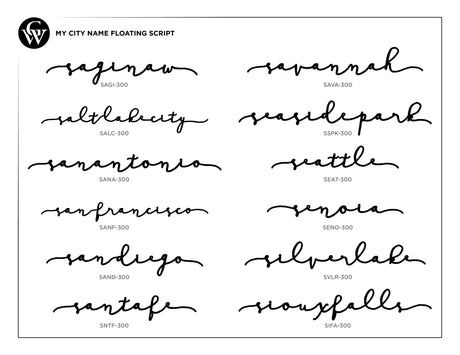 CW
MY CITY NAME FLOATING SCRIPT
saginaw
SAGI-300
saltlakecity
SALC-300
sanantonio
SANA-300
sanfrancisco
SANF-300
sandiego
SAND-300
santafe
SNTF-300
savannah
SAVA-300
seasidepark
SSPK-300
seattle
SEAT-300
senoia
SENO-300
silverlake
SVLR-300
siouxfalls
SIFA-300